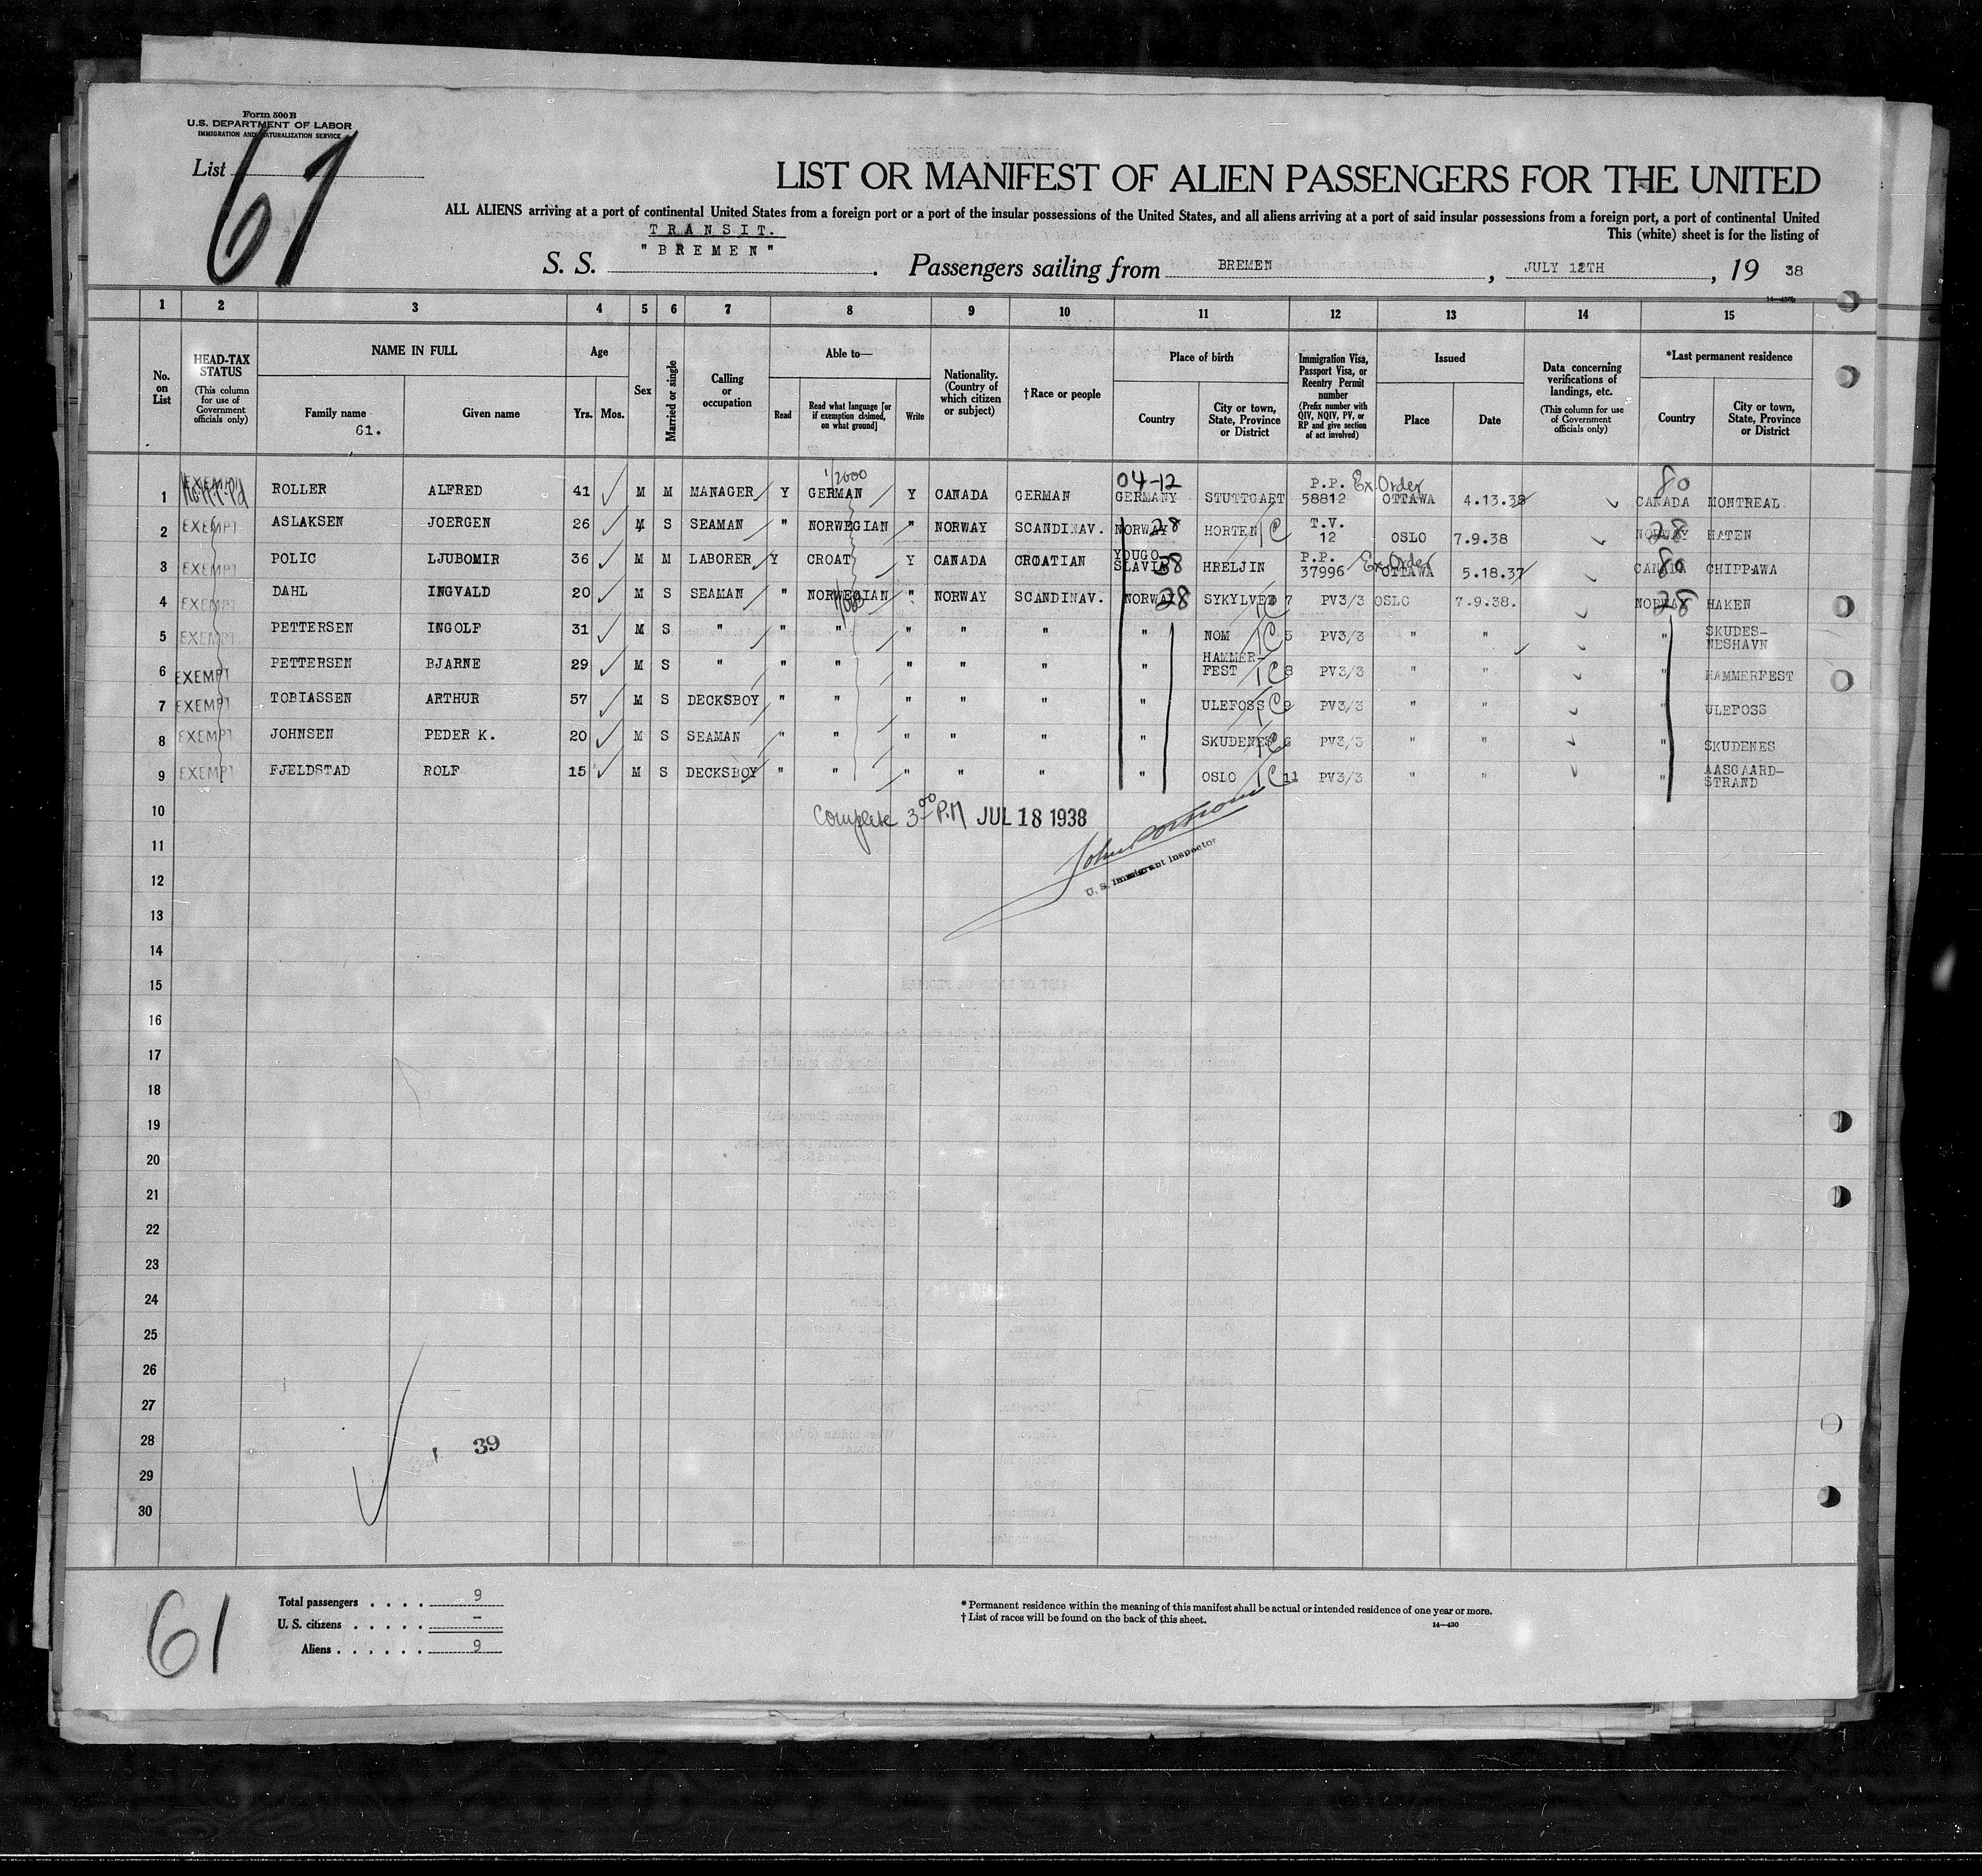 Form 500B
U.S. DEPARTMENT OF LABOR
IMMIGRATION AND NATURALIZATION SERVICE
List 61
LIST OR MANIFEST OF ALIEN PASSENGERS FOR THE UNITED
ALL ALIENS arriving at a port of continental United States from a foreign port or a port of the insular possessions of the United States, and all aliens arriving at a port of said insular possessions from a foreign port, a port of continental United
This (white) sheet is for the listing of
TRANSIT.
S. S. "BREMEN". Passengers sailing from BREMEN, JULY 12TH, 19 38
1 2 3 4 5 6 7 8 9 10 11 12 13 14 15
No. on List
HEAD-TAX STATUS
(This column for use of Government officials only)
NAME IN FULL
Family name
61.
Given name
Age
Yrs. Mos.
Sex
Married or single
Calling or occupation
Able to—
Read
Read what language [or if exemption claimed, on what ground]
Write
Nationality. (Country of which citizen or subject)
†Race or people
Place of birth
Country
City or town, State, Province or District
Immigration Visa, Passport Visa, or Reentry Permit number
(Prefix number with QIV, NQIV, PV, or RP and give section of act involved)
Issued
Place
Date
Data concerning verifications of landings, etc.
(This column for use of Government officials only)
*Last permanent residence
Country
City or town, State, Province or District
04-12 P.P. Ex Order 80
1 EXEMPT ROLLER ALFRED 41 M M MANAGER Y GERMAN Y CANADA GERMAN GERMANY STUTTGART 58812 OTTAWA 4.13.38 CANADA MONTREAL
2 EXEMPT ASLAKSEN JOERGEN 26 M S SEAMAN " NORWEGIAN " NORWAY SCANDINAV. NORWAY 28 HORTEN T.V. 12 OSLO 7.9.38 NORWAY 28 HATEN
3 EXEMPT POLIC LJUBOMIR 36 M M LABORER Y CROAT Y CANADA CROATIAN YOUGO SLAVIA 38 HRELJIN P.P. 37996 Ex Order OTTAWA 5.18.37 CANADA 80 CHIPPAWA
4 EXEMPT DAHL INGVALD 20 M S SEAMAN " NORWEGIAN " NORWAY SCANDINAV. NORWAY 28 7 PV3/3 OSLO 7.9.38. NORWAY 28 HAKEN
5 EXEMPT PETTERSEN INGOLF 31 M S " " " " " " " NOM 5 PV3/3 " " " SKUDES-NESHAVN
6 EXEMPT PETTERSEN BJARNE 29 M S " " " " " " " HAMMER-FEST 8 PV3/3 " " " HAMMERFEST
7 EXEMPT TOBIASSEN ARTHUR 57 M S DECKSBOY " " " " " " ULEFOSS 9 PV3/3 " " " ULEFOSS
8 EXEMPT JOHNSEN PEDER K. 20 M S SEAMAN " " " " " " SKUDENES 6 PV3/3 " " " SKUDENES
9 EXEMPT FJELDSTAD ROLF 15 M S DECKSBOY " " " " " " OSLO 11 PV3/3 " " " AASGAARD-STRAND
10 Complete 3 00 P.M JUL 18 1938
11
U. S. Immigrant Inspector
12
13
14
15
16
17
18
19
20
21
22
23
24
25
26
27
28 39
29
30
61
Total passengers . . . . 9
U. S. citizens . . . . . –
Aliens . . . . . . 9
* Permanent residence within the meaning of this manifest shall be actual or intended residence of one year or more.
† List of races will be found on the back of this sheet.
14—430